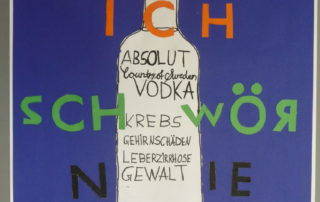 ICH
ABSOLUT
Country of Sweden
VODKA
SCHWÖR
KREBS
GEHIRNSCHÄDEN
LEBERZIRRHOSE
GEWALT
NIE